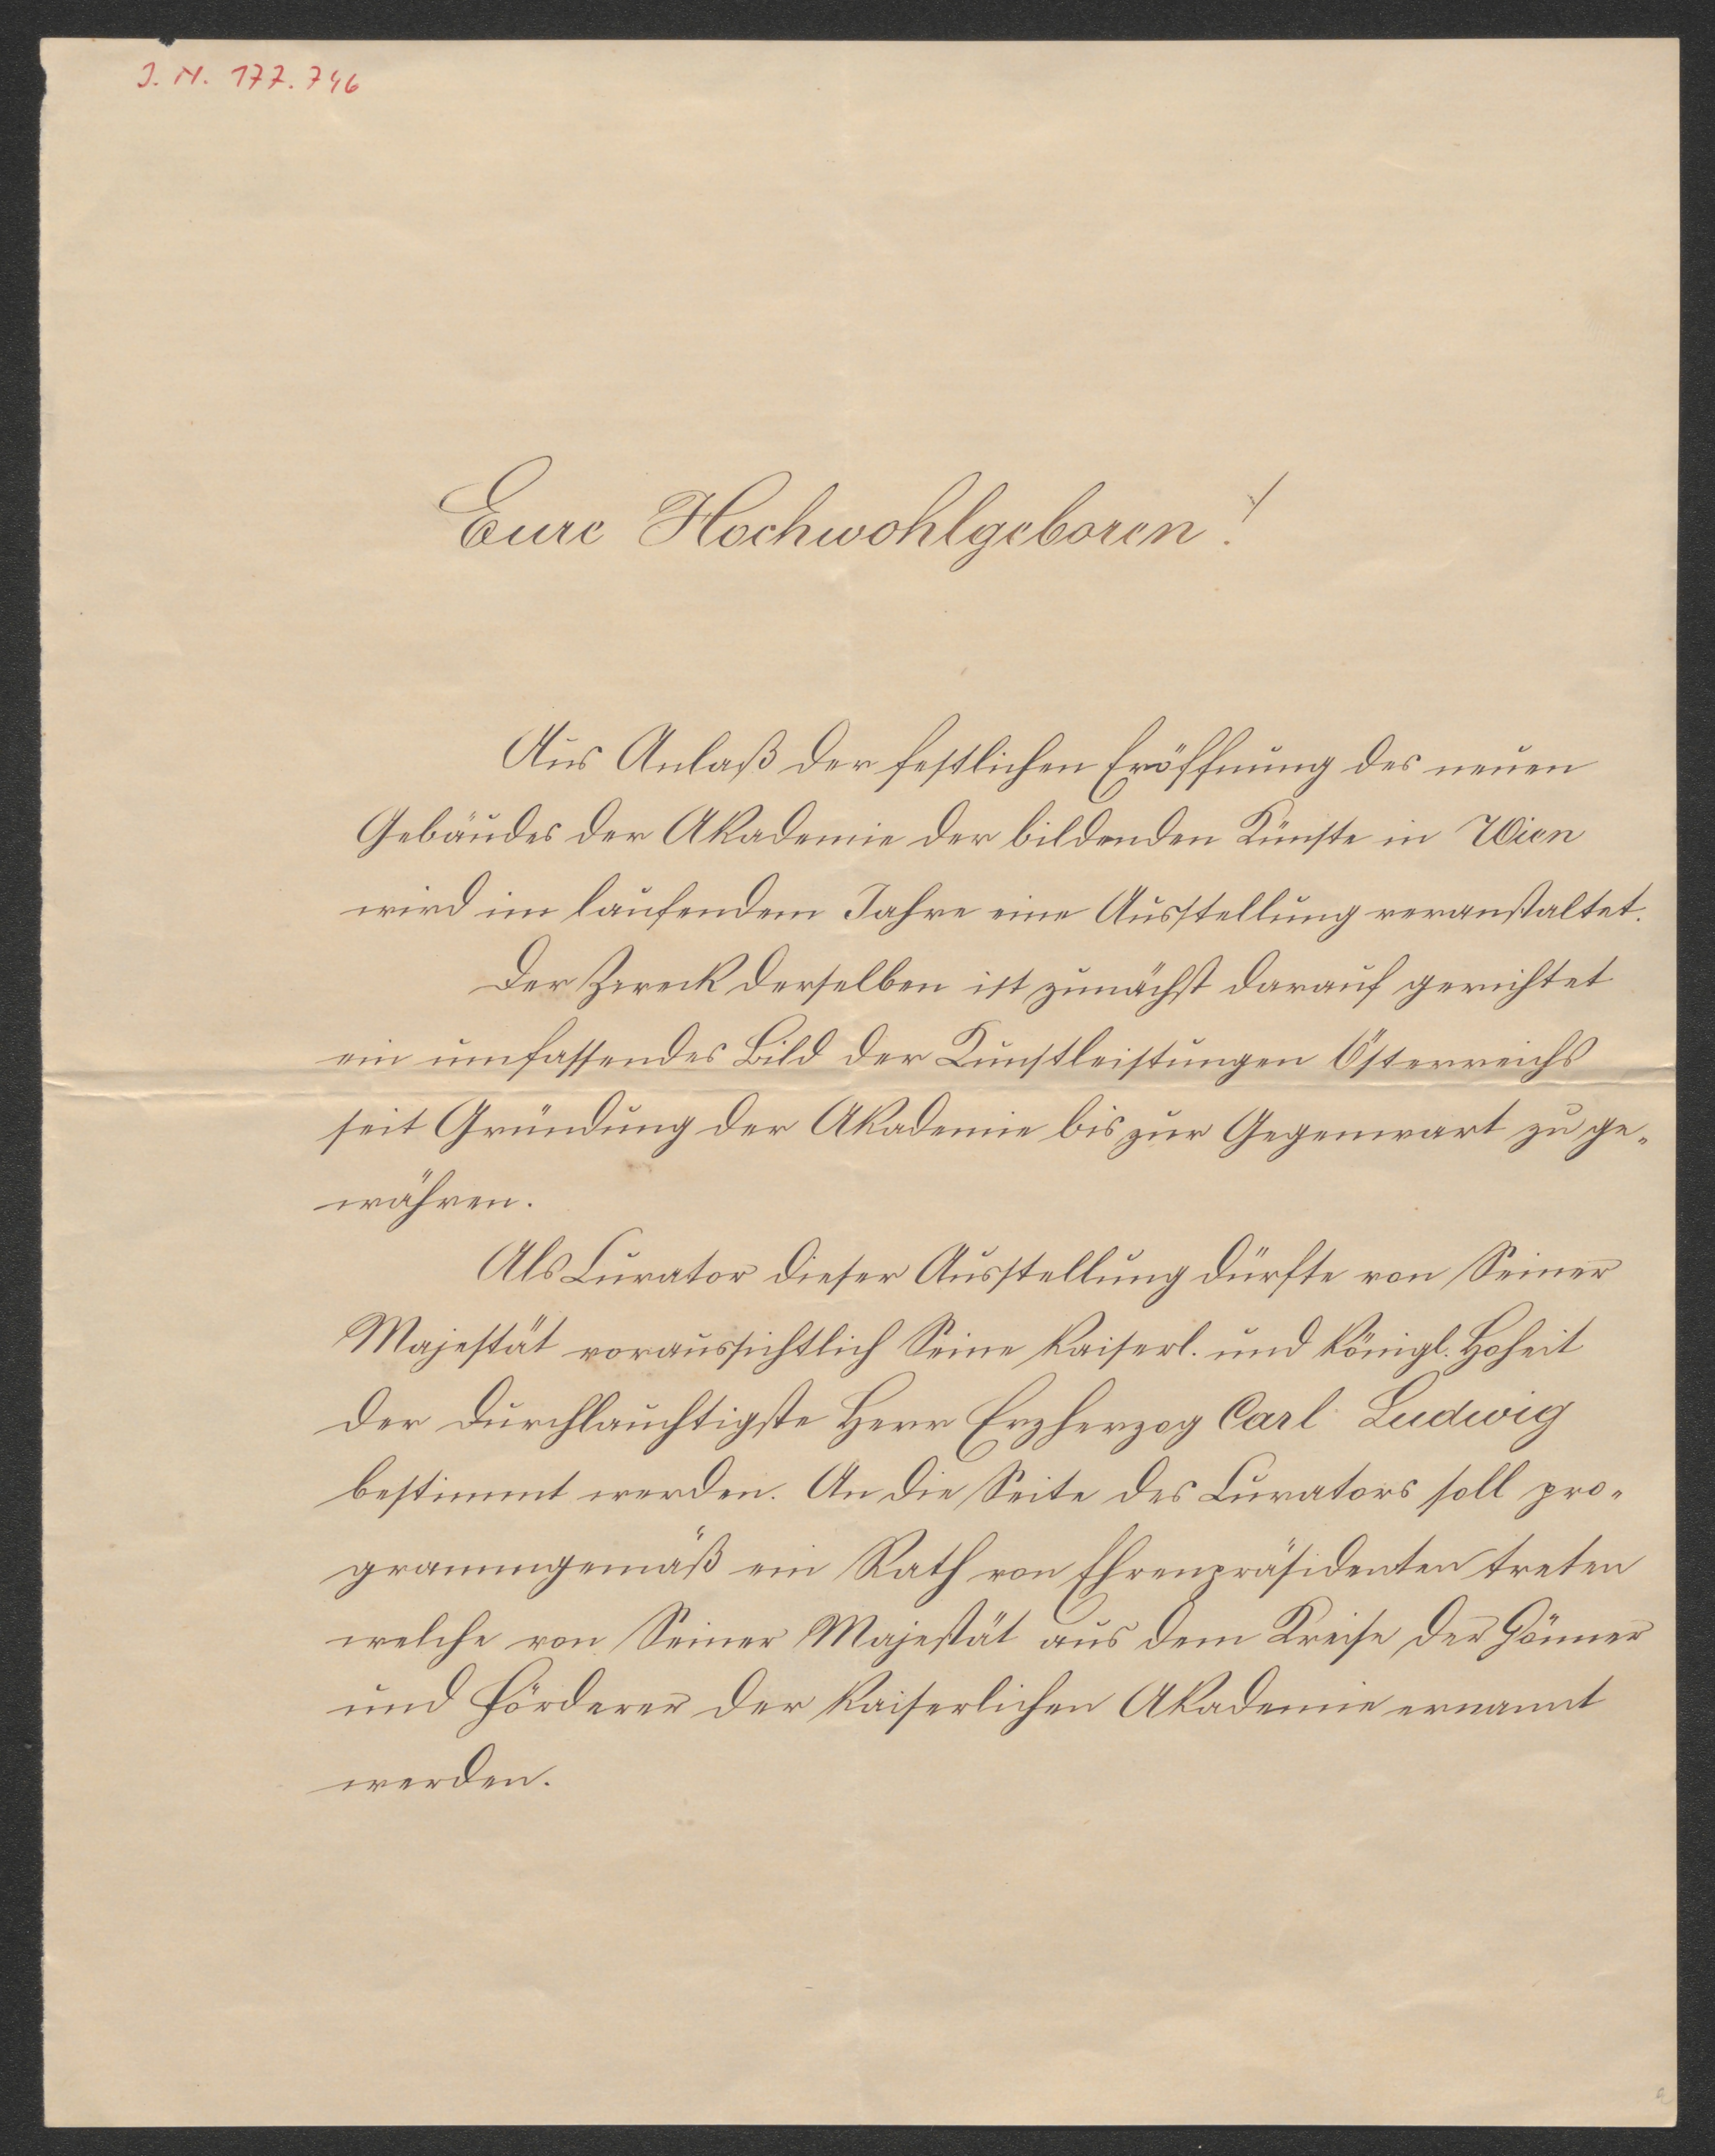 J. N. 177.746
Eure Hochwohlgeboren!
Aus Anlaß der festlichen Eröffnung des neuen
Gebäudes der Akademie der bildenden Künste in Wien
wird im laufendem Jahre eine Ausstellung veranstaltet.
Der Zweck derselben ist zunächst darauf gerichtet
ein umfassendes Bild der Kunstleistungen Österreichs
seit Gründung der Akademie bis zur Gegenwart zu ge-
währen.
Als Curator dieser Ausstellung dürfte von Seiner
Majestät voraussichtlich Seine kaiserl. und königl. Hoheit
der Durchlauchtigste Herr Erzherzog Carl Ludwig
bestimmt werden. An die Seite des Curators soll pro-
grammgemäß ein Rath von Ehrenpräsidenten treten
welche von Seiner Majestät aus dem Kreise der Gönner
und Förderer der kaiserlichen Akademie ernannt
werden.